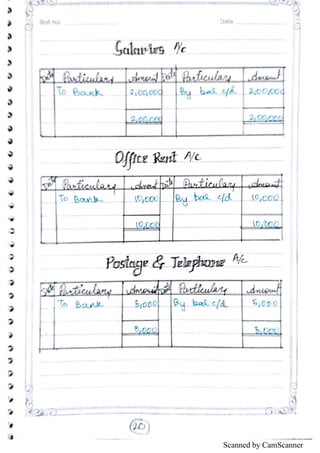 Date
Salaries A/c
Date Particulars Amount Date Particulars Amount
To Bank 2,00,000 By bal c/d 2,00,000
2,00,000 2,00,000
Office Rent A/c
Date Particulars Amount Date Particulars Amount
To Bank 10,000 By bal c/d 10,000
10,000 10,000
Postage & Telephone A/c
Date Particulars Amount Date Particulars Amount
To Bank 5,000 By bal c/d 5,000
5,000 5,000
20
Scanned by CamScanner